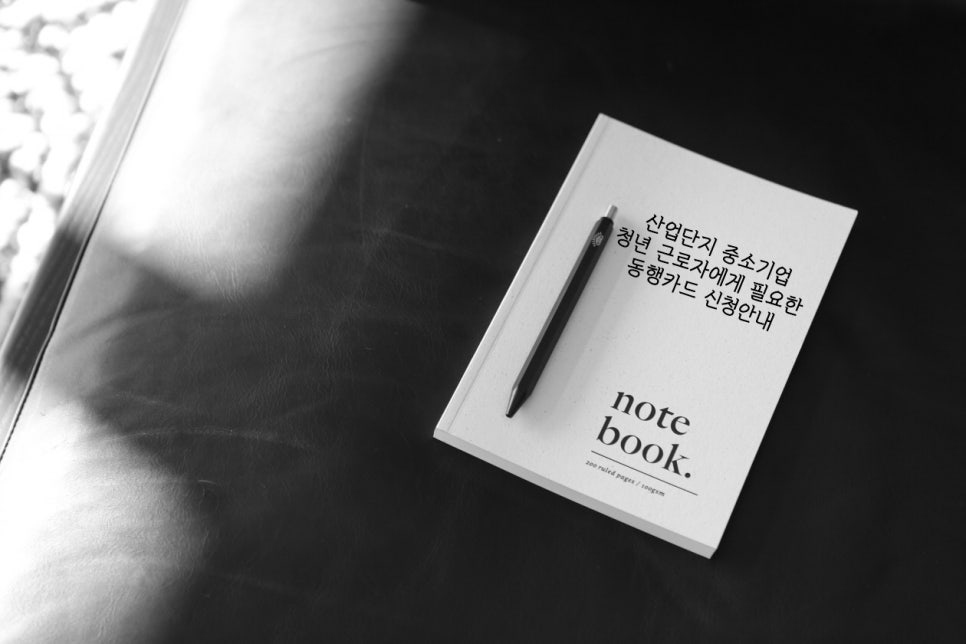 산업단지 중소기업
청년 근로자에게 필요한
동행카드 신청안내
note
book.
200 ruled pages / 100gsm